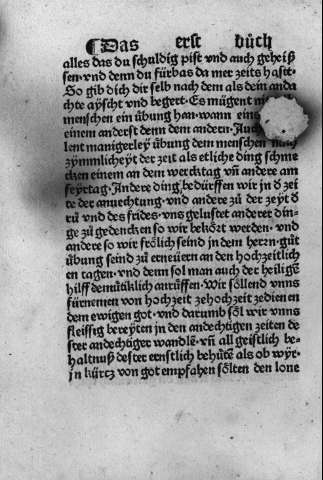 ¶ Das erst bůch
alles das du schuldig pist vnd auch geheiß
sen·vnd denn du fürbas da mer zeits hast·
So gib dich dir selb nach dem als dein anda
chte ayscht vnd begert·Es mügent
menschen ein übung han·wann ein
einem anderst denn dem andern·Auch
lent manigerley übung dem menschen nach
zymmlicheyt der zeit als etliche ding schme
cken einem an dem wercktag vñ andere am
feyrtag·Andere ding bedürffen wir jn d zei
te der anuechtung·vnd andere zů der zeyt d
rů vnd des frides·vns gelustet anderer din-
ge zů gedencken so wir bekört werden·vnd
andere so wir frölich seind in dem herrn·gůt
übung seind zů erneüern an den hochzeitlich
en tagen·vnd denn sol man auch der heiligē
hilff demütiklich anrüffen·Wir söllend vnns
fürnemen von hochzeit zehochzeit zedienen
dem ewigen got·vnd darumb söl wir vnns
fleissig bereyten jn den andechtigen zeiten de
ster andechtiger wandlē·vñ all geistlich be-
haltnuß dester ernstlich behütē als ob wyr·
jn kürtz von got empfahen sölten den lone